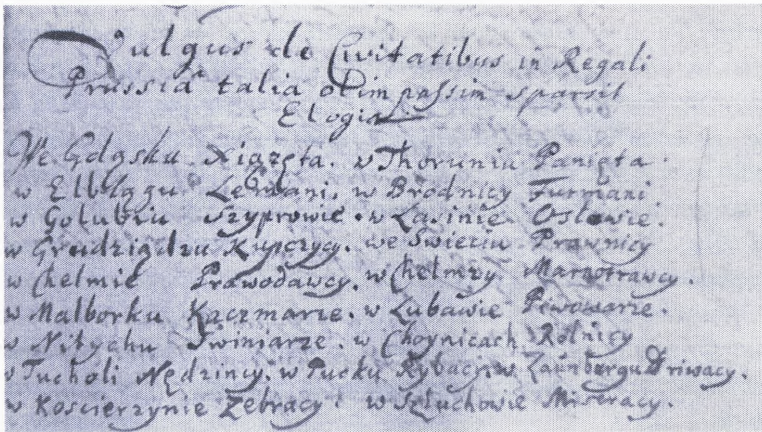 Vulgus de Civitatibus in Regali
Prussia talia olim passim sparsit
Elogia
We Gdąsku Xiążęta. w Thoruniu Panięta.
w Elblągu Lędwani. w Brodnicy Furmani
w Golubiu Szyprowie. w Lasinie Osłowie.
w Grudziądzu Kupczycy. we Swieciu Prawnicy
w Chełmie Prawodawcy. w Chełmży Marnotrawcy.
w Malborku Kaczmarze. w Lubawie Piwowarze.
w Nitychu Swiniarze. w Choynicach Rolnicy
w Tucholi Nędznicy. w Pucku Rybacy. w
w Koscierzynie Zebracy. w Szłuchowie Miseracy.